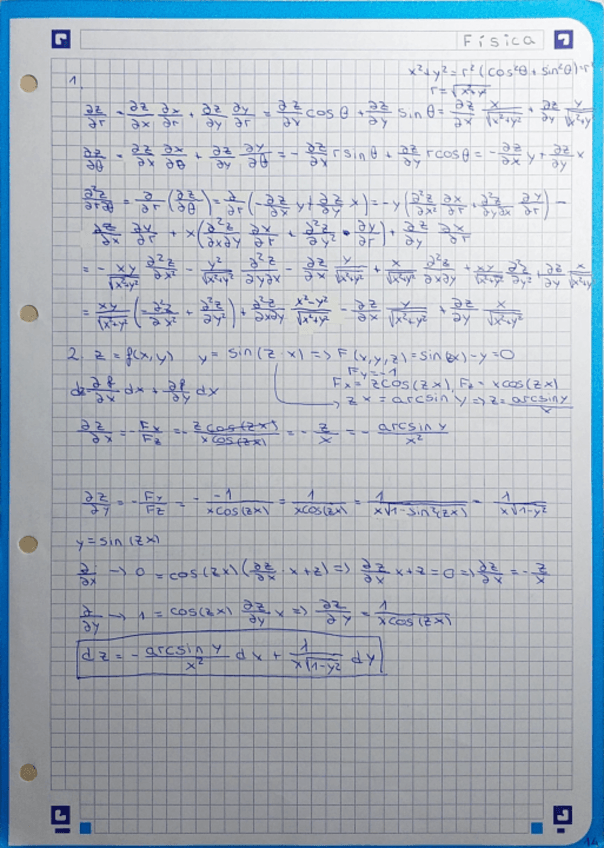 Física
x²+y² = r²(cos²θ + sin²θ) = r²
r = √x²+y²
1.
∂z/∂r = ∂z/∂x ∂x/∂r + ∂z/∂y ∂y/∂r = ∂z/∂x cos θ + ∂z/∂y sin θ = ∂z/∂x x/√x²+y² + ∂z/∂y y/√x²+y²
∂z/∂θ = ∂z/∂x ∂x/∂θ + ∂z/∂y ∂y/∂θ = - ∂z/∂x r sin θ + ∂z/∂y r cos θ = - ∂z/∂x y + ∂z/∂y x
∂²z/∂r∂θ = ∂/∂r (∂z/∂θ) = ∂/∂r (- ∂z/∂x y + ∂z/∂y x) = -y (∂²z/∂x² ∂x/∂r + ∂²z/∂y∂x ∂y/∂r) -
∂z/∂x ∂y/∂r + x (∂²z/∂x∂y ∂x/∂r + ∂²z/∂y² · ∂y/∂r) + ∂z/∂y ∂x/∂r
= - xy/√x²+y² ∂²z/∂x² - y²/√x²+y² ∂²z/∂y∂x - ∂z/∂x y/√x²+y² + x/√x²+y² ∂²z/∂x∂y + xy/√x²+y² ∂²z/∂y² + ∂z/∂y x/√x²+y²
= xy/√x²+y² (- ∂²z/∂x² + ∂²z/∂y²) + ∂²z/∂x∂y x²-y²/√x²+y² - ∂z/∂x y/√x²+y² + ∂z/∂y x/√x²+y²
2. z = f(x,y) y = sin(z·x) => F(x,y,z) = sin(zx) - y = 0
Fy = -1
dz = ∂f/∂x dx + ∂f/∂y dx
Fx = z cos(zx), Fz = x cos(zx)
→ zx = arcsin y => z = arcsin y/x
∂z/∂x = - Fx/Fz = - z cos(zx)/x cos(zx) = - z/x = - arcsin y/x²
∂z/∂y = - Fy/Fz = - -1/x cos(zx) = 1/x cos(zx) = 1/x√1-sin²(zx) = 1/x√1-y²
y = sin(zx)
∂/∂x → 0 = cos(zx) (∂z/∂x · x + z) => ∂z/∂x x + z = 0 => ∂z/∂x = - z/x
∂/∂y → 1 = cos(zx) ∂z/∂y x => ∂z/∂y = 1/x cos(zx)
dz = - arcsin y/x² dx + 1/x√1-y² dy